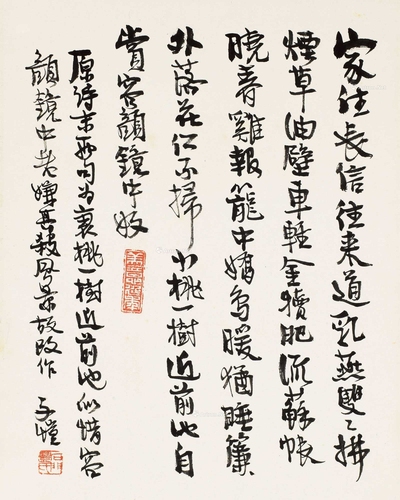 家住長信往來道乳燕雙〻拂
煙草油壁車輕金犢肥流蘇帳
曉春雞報籠中嬌鳥暖猶睡簾
外落花不掃小桃一樹近前池自
賞容顏鏡中好
原詩末兩句為衰桃一樹近前池似惜容
顏鏡中老嫌其殺風景故改作 子愷